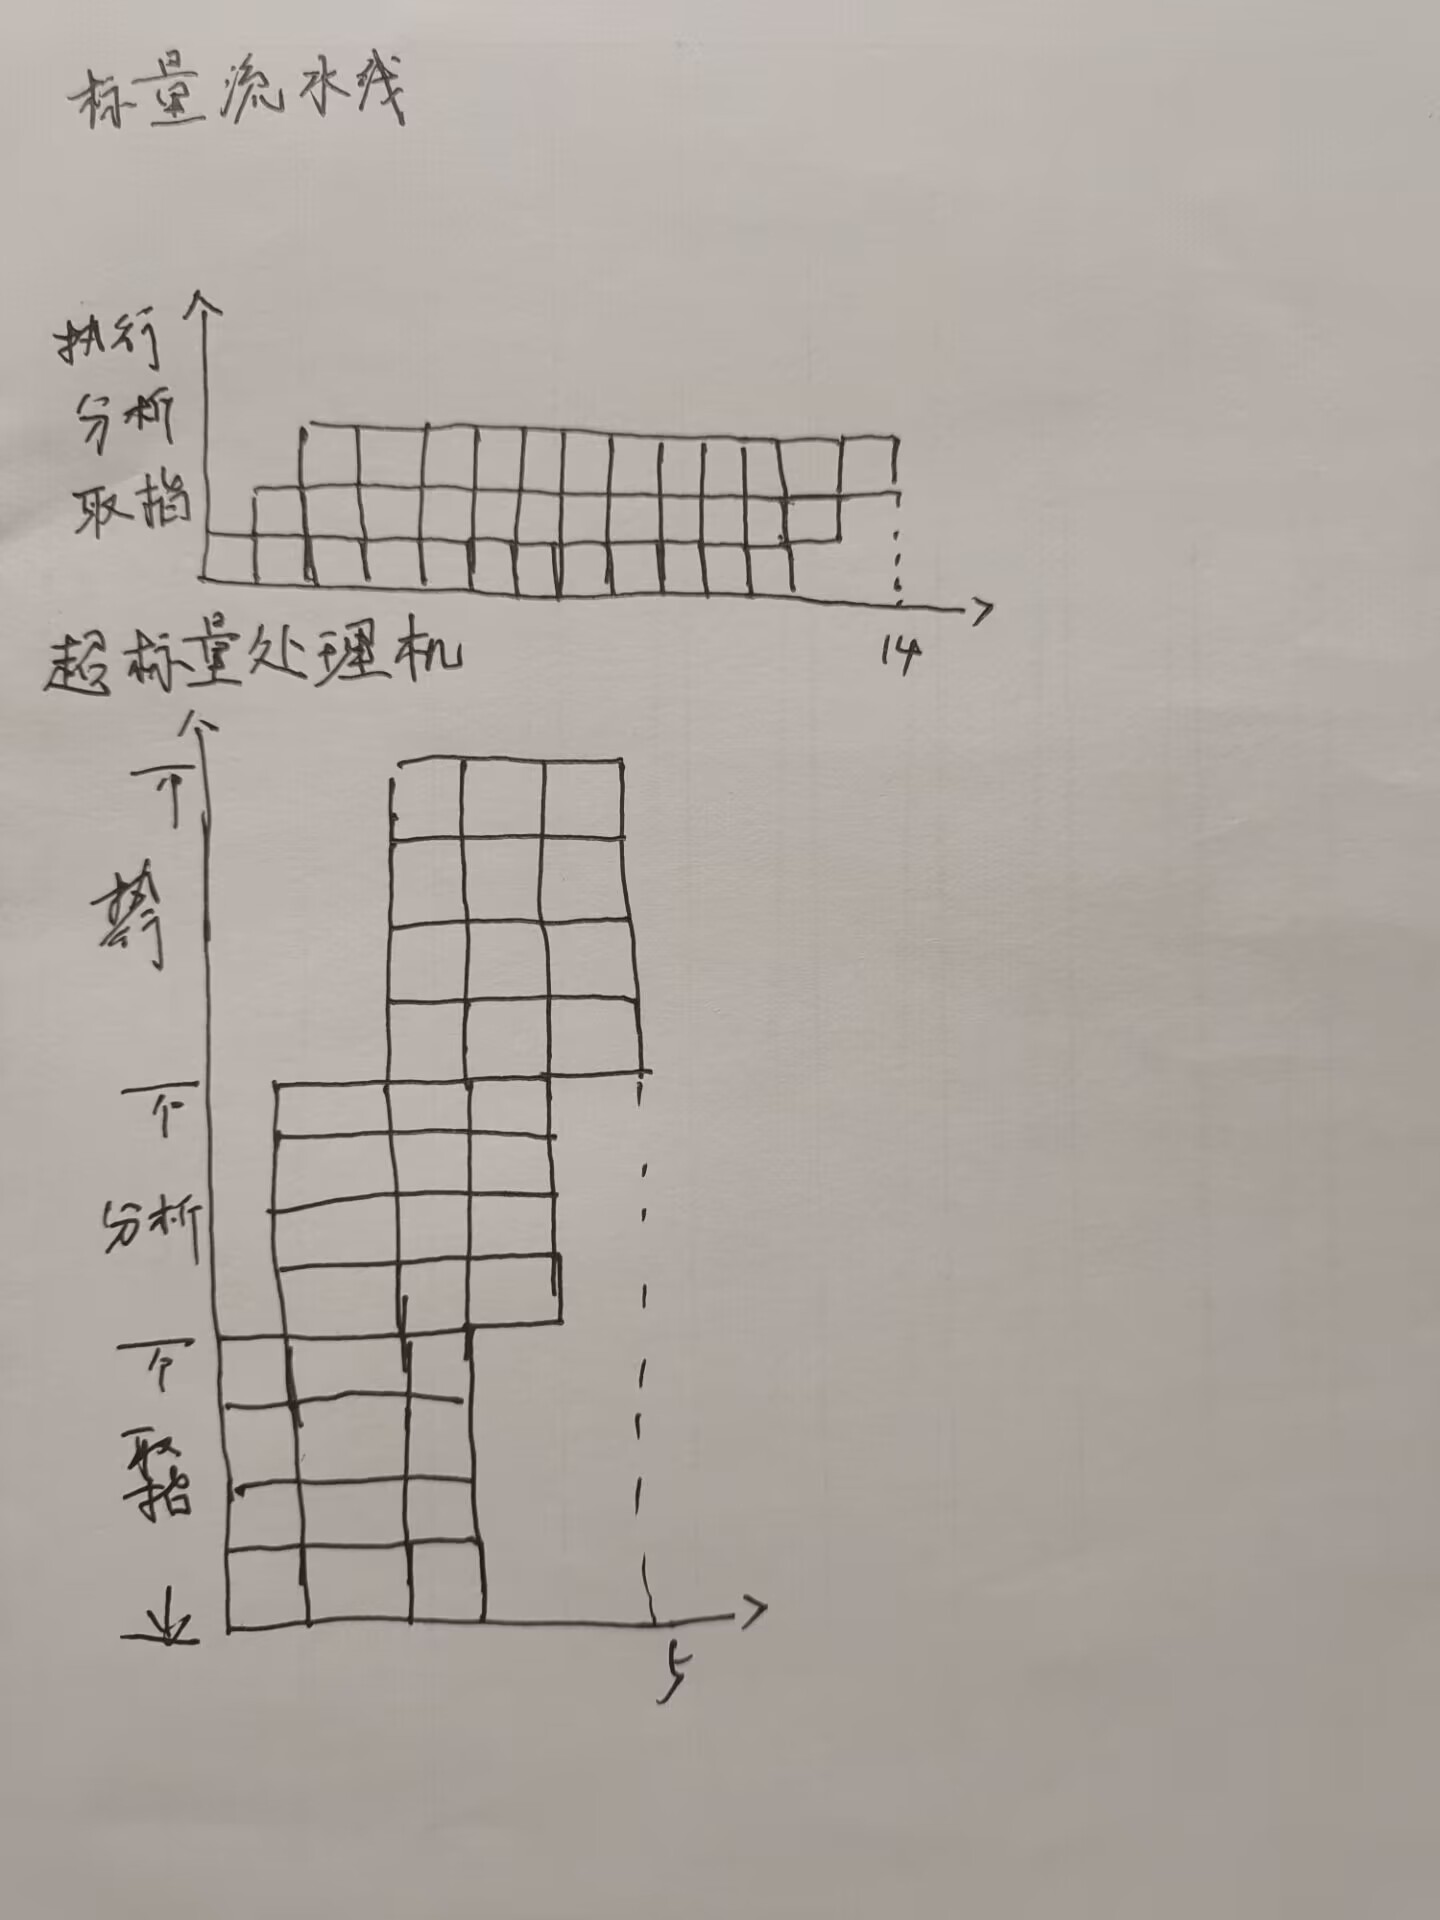 标量流水线
执行
分析
取指
14
超标量处理机
执行
分析
取指
5